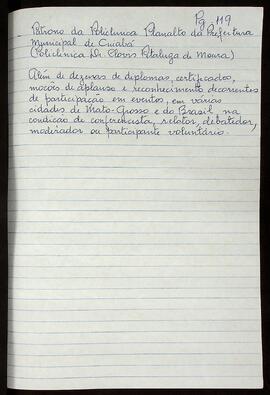 Pg. 119
Patrono da Policlínica Planalto da Prefeitura
Municipal de Cuiabá
(Policlínica Dr. Clovis Pitaluga de Moura)
Além de dezenas de diplomas, certificados,
moções de aplauso e reconhecimento decorrentes
de participação em eventos, em várias
cidades de Mato-Grosso e do Brasil, na
condição de conferencista, relator, debatedor,
moderador ou participante voluntário.